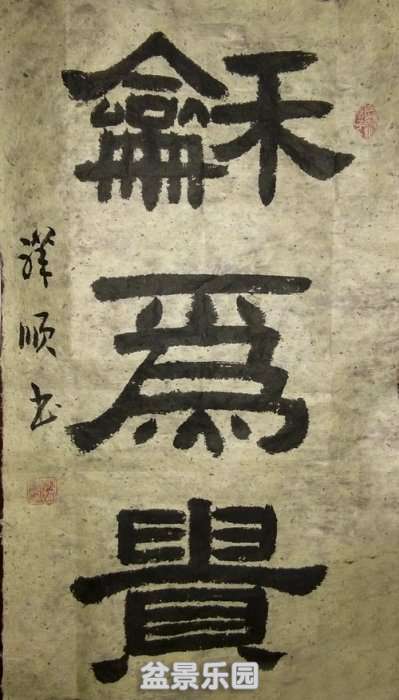 龢為貴
祥順书
盆景乐园